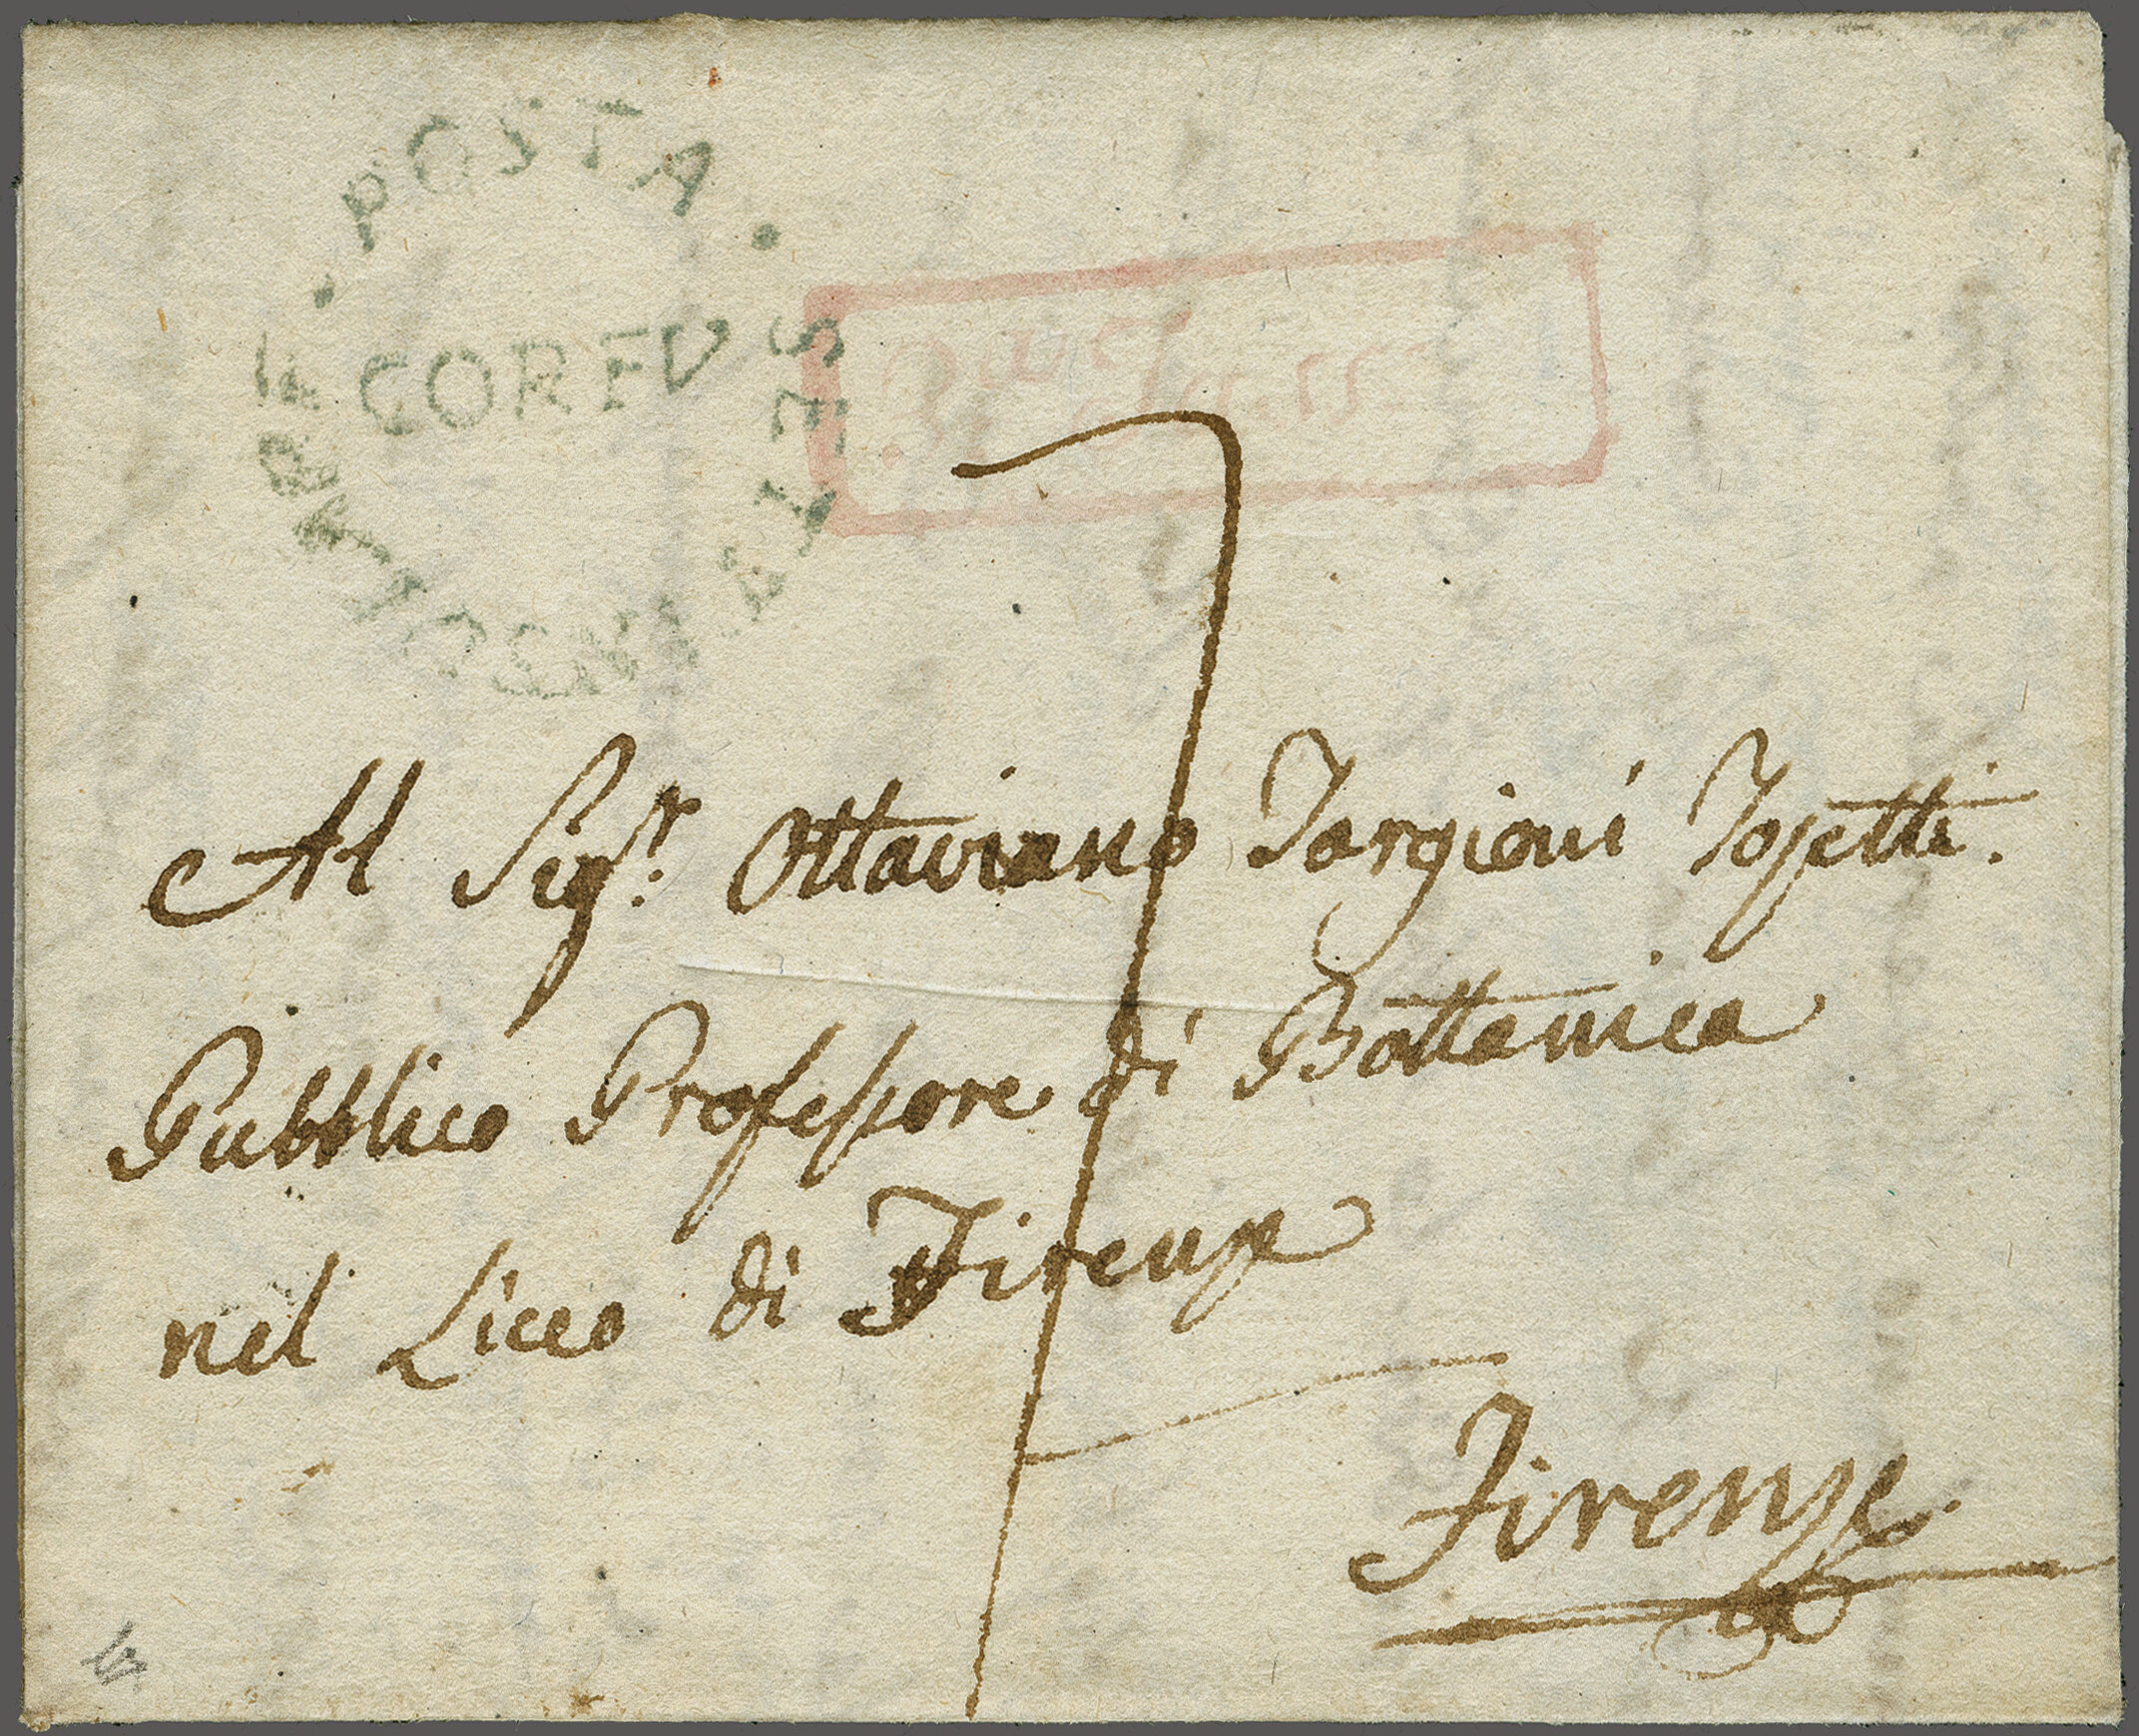 . POSTA .
CORFV
7
Al Sig.r Ottaviano Targioni Tozetti.
Pubblico Professore di Bottanica
nel Liceo di Firenze
Firenze